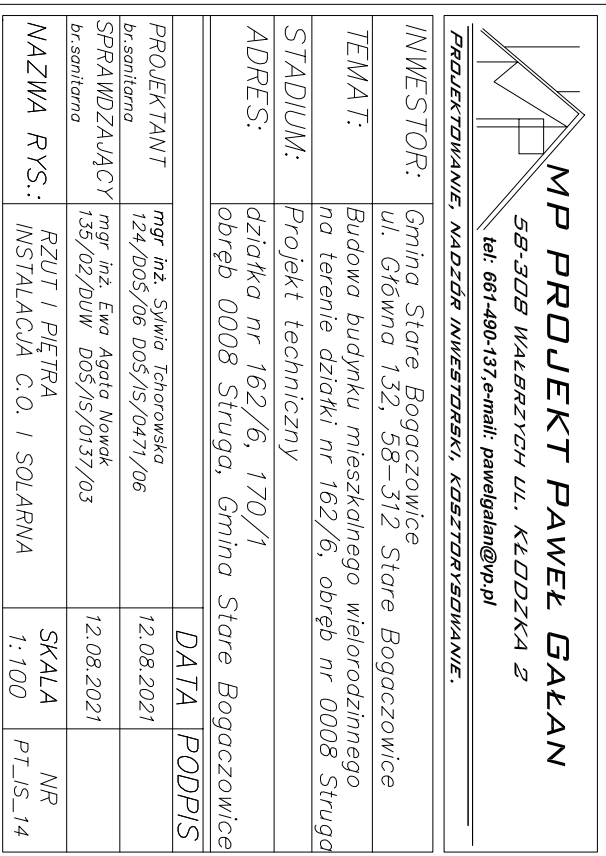 MP PROJEKT PAWEŁ GAŁAN
58-308 WAŁBRZYCH UL. KŁODZKA 2
tel: 661-490-137,e-mail: pawelgalan@vp.pl
PROJEKTOWANIE, NADZÓR INWESTORSKI, KOSZTORYSOWANIE.
INWESTOR: Gmina Stare Bogaczowice
ul. Główna 132, 58-312 Stare Bogaczowice
TEMAT: Budowa budynku mieszkalnego wielorodzinnego
na terenie działki nr 162/6, obręb nr 0008 Struga
STADIUM: Projekt techniczny
ADRES: działka nr 162/6, 170/1
obręb 0008 Struga, Gmina Stare Bogaczowice
DATA PODPIS
PROJEKTANT mgr inż. Sylwia Tchorowska 12.08.2021
br.sanitarna 124/DOŚ/06 DOŚ/IS/0471/06
SPRAWDZAJĄCY mgr inż. Ewa Agata Nowak 12.08.2021
br.sanitarna 135/02/DUW DOŚ/IS/0137/03
NAZWA RYS.: RZUT I PIĘTRA SKALA NR
INSTALACJA C.O. I SOLARNA 1:100 PT_IS_14